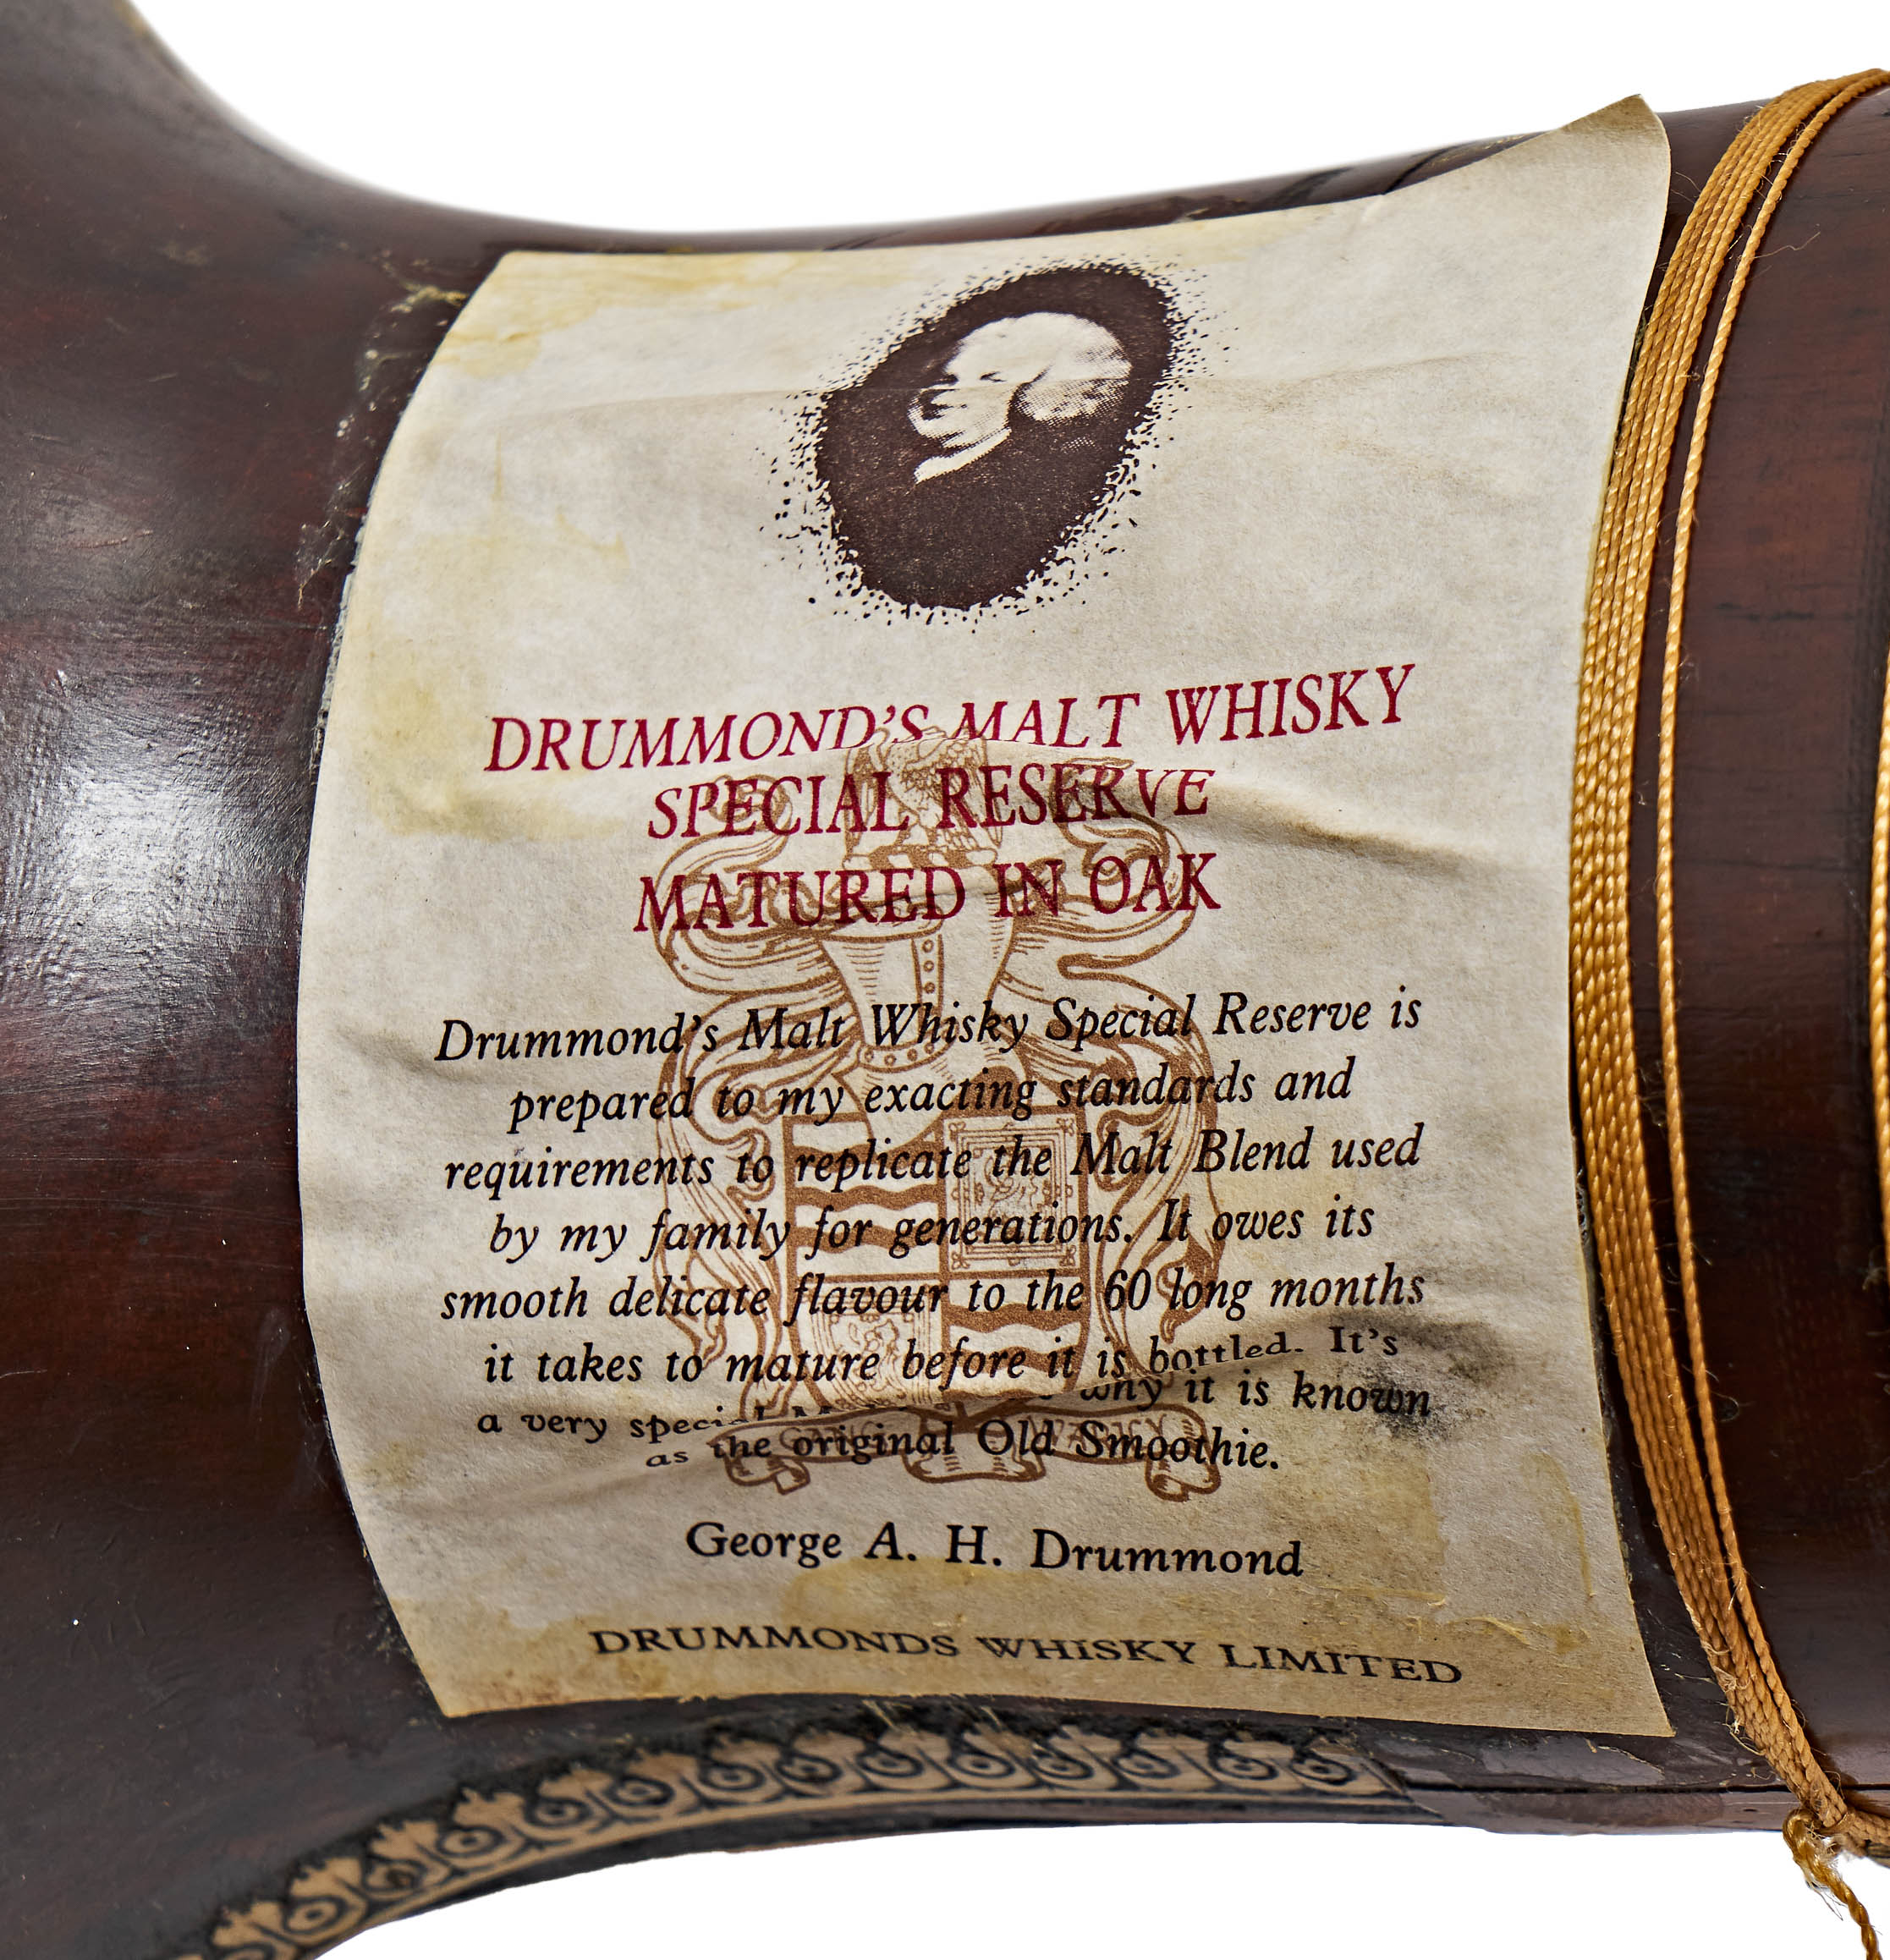 DRUMMOND'S MALT WHISKY
SPECIAL RESERVE
MATURED IN OAK
Drummond's Malt Whisky Special Reserve is
prepared to my exacting standards and
requirements to replicate the Malt Blend used
by my family for generations. It owes its
smooth delicate flavour to the 60 long months
it takes to mature before it is bottled. It's
a very special why it is known
as the original Old Smoothie.
George A. H. Drummond
DRUMMONDS WHISKY LIMITED